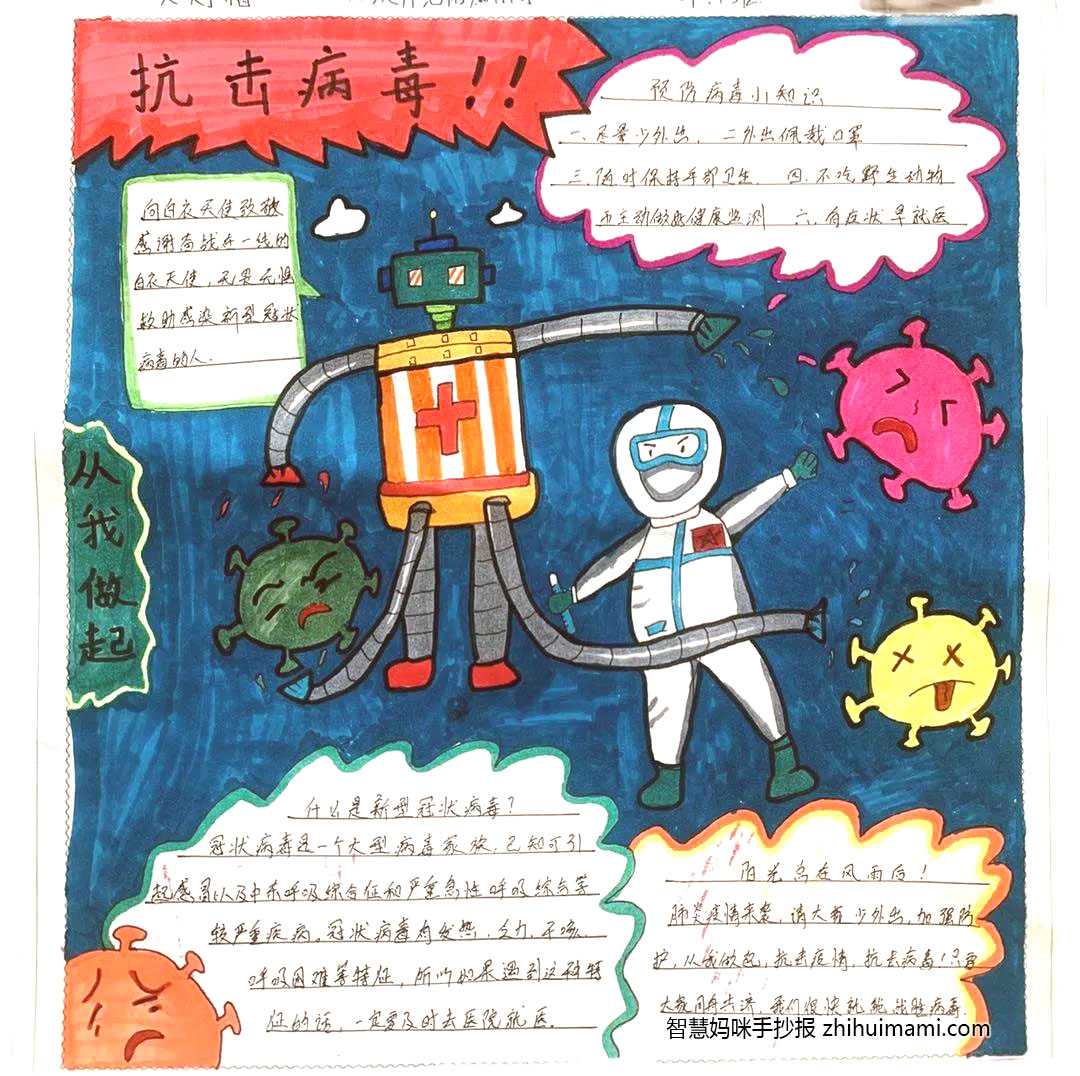 抗击病毒!!
预防病毒小知识
一.尽量少外出. 二外出佩戴口罩
三.随时保持手部卫生. 四.不吃野生动物
五主动做好健康监测 六.有症状早就医
向白衣天使致敬
感谢奋战在一线的
白衣天使，无畏无惧
救助感染新型冠状
病毒的人.
从
我
做
起
什么是新型冠状病毒?
冠状病毒是一个大型病毒家族.已知可引
起感冒以及中东呼吸综合征和严重急性呼吸综合等
较严重疾病。冠状病毒有发热.乏力.干咳.
呼吸困难等特征，所以如果遇到这种特
征的话，一定要及时去医院就医.
阳光总在风雨后!
肺炎疫情来袭，请大家少外出,加强防
护,从我做起,抗击疫情,抗击病毒!只要
大家同舟共济，我们很快就能战胜病毒.
智慧妈咪手抄报 zhihuimami.com